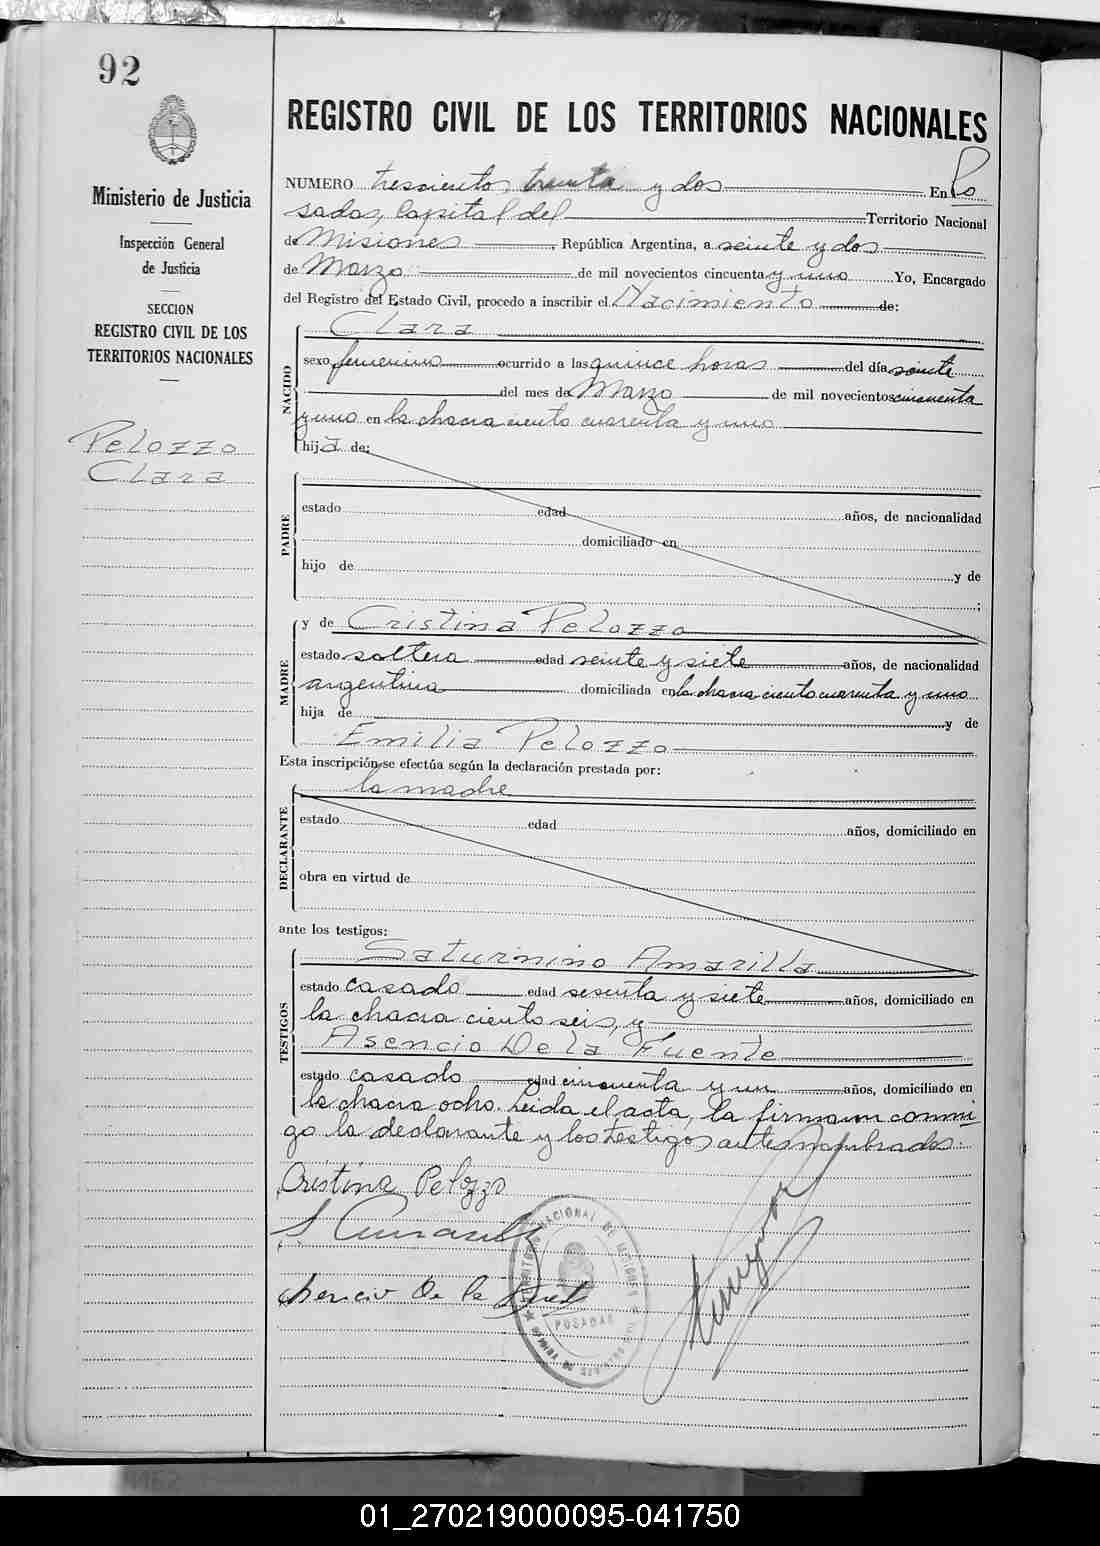 92
REGISTRO CIVIL DE LOS TERRITORIOS NACIONALES
Ministerio de Justicia
Inspección General
de Justicia
SECCION
REGISTRO CIVIL DE LOS
TERRITORIOS NACIONALES
Pelozzo
Clara
NUMERO trescientos, treinta y dos En Po
sadas, Capital del Territorio Nacional
de Misiones, República Argentina, a veinte y dos
de Marzo de mil novecientos cincuenta y uno Yo, Encargado
del Registro del Estado Civil, procedo a inscribir el Nacimiento de:
NACIDO
Clara
sexo femenino ocurrido a las quince horas del día veinte
del mes de Marzo de mil novecientos cincuenta
y uno en la chacra ciento cuarenta y uno
hija de:
PADRE
estado edad años, de nacionalidad
domiciliado en
hijo de y de
;
MADRE
y de Cristina Pelozzo
estado soltera edad veinte y siete años, de nacionalidad
argentina domiciliada en la chacra ciento cuarenta y uno
hija de y de
Emilia Pelozzo
Esta inscripción se efectúa según la declaración prestada por:
DECLARANTE
la madre
estado edad años, domiciliado en
obra en virtud de
ante los testigos:
TESTIGOS
Saturnino Amarilla
estado casado edad sesenta y siete años, domiciliado en
la chacra ciento seis, y
Asencio De la Fuente
estado casado edad cincuenta y un años, domiciliado en
la chacra ocho. Leida el acta, la firman conmi
go la declarante y los testigos antes nombrados.
Cristina Pelozzo
Asencio De la
POSADAS
01_270219000095-041750